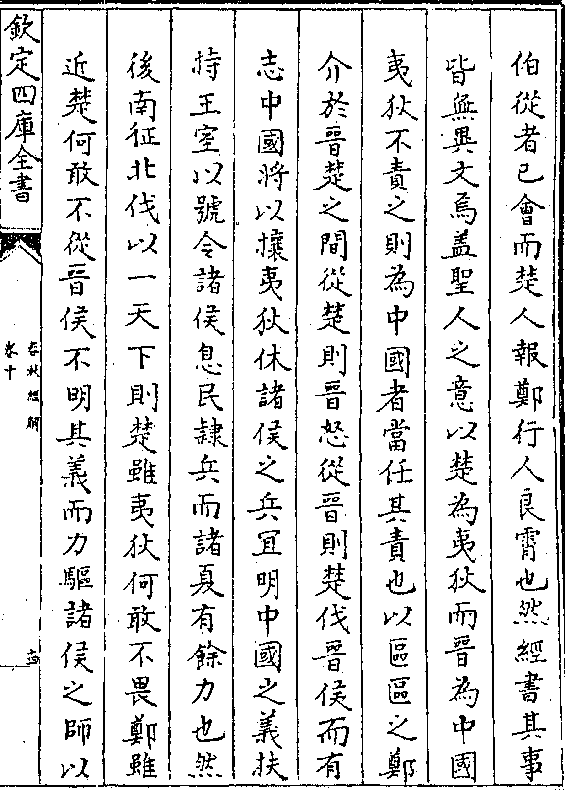 伯從者已會而楚人報鄭行人良霄也然經書其事
皆無異文焉蓋聖人之意以楚為夷狄而晉為中國
夷狄不責之則為中國者當任其責也以區區之鄭
介於晉楚之間從楚則晉怒從晉則楚伐晉侯而有
志中國將以攘夷狄休諸侯之兵宜明中國之義扶
持王室以號令諸侯息民隸兵而諸夏有餘力也然
後南征北伐以一天下則楚雖夷狄何敢不畏鄭雖
近楚何敢不從晉侯不明其義而力驅諸侯之師以
欽定四庫全書
春秋經解
卷十
十四